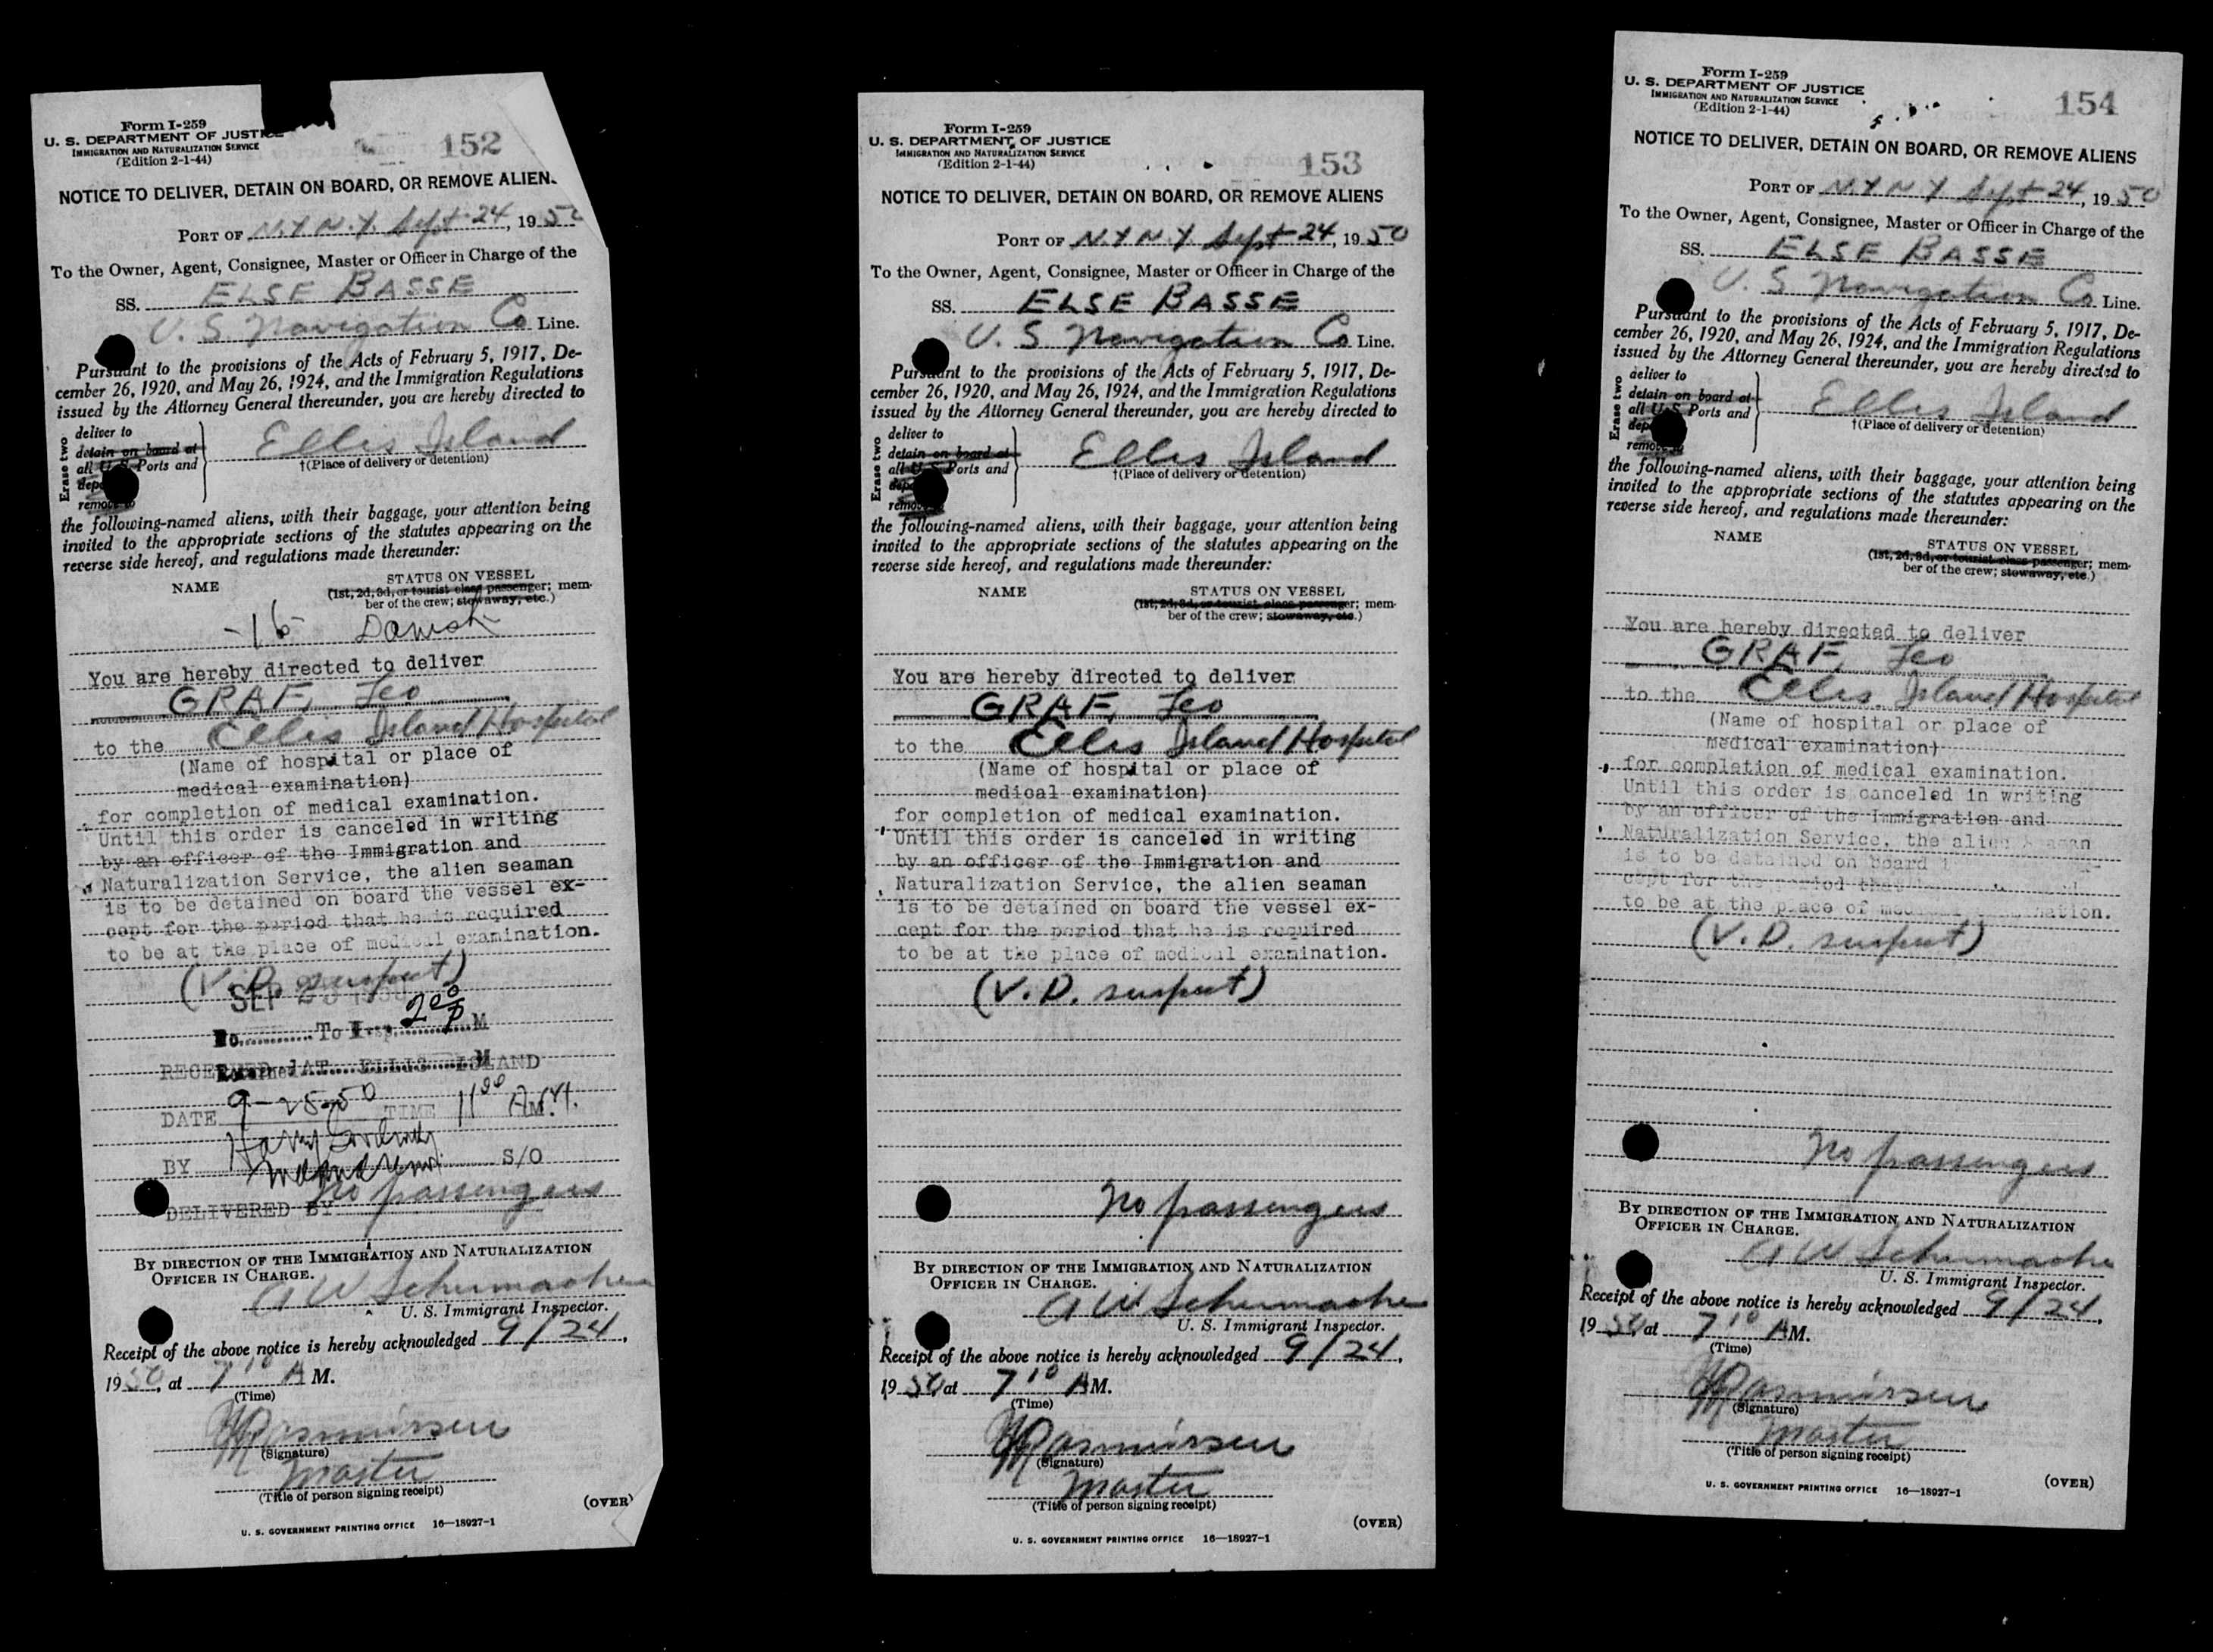 Form I-259
U. S. DEPARTMENT OF JUSTICE
IMMIGRATION AND NATURALIZATION SERVICE
(Edition 2-1-44)
152
NOTICE TO DELIVER, DETAIN ON BOARD, OR REMOVE ALIEN
PORT OF N.Y. N.Y. Sept 24, 1950
To the Owner, Agent, Consignee, Master or Officer in Charge of the
SS. ELSE BASSE
U. S Navigation Co Line.
Pursuant to the provisions of the Acts of February 5, 1917, De-
cember 26, 1920, and May 26, 1924, and the Immigration Regulations
issued by the Attorney General thereunder, you are hereby directed to
Erase two
deliver to
detain on board at
all U. S. Ports and
remove to
Ellis Island
†(Place of delivery or detention)
the following-named aliens, with their baggage, your attention being
invited to the appropriate sections of the statutes appearing on the
reverse side hereof, and regulations made thereunder:
NAME
STATUS ON VESSEL
(1st, 2d, 3d, or tourist class passenger; mem-
ber of the crew; stowaway, etc.)
-16- Danish
You are hereby directed to deliver
GRAF, Leo
to the Ellis Island Hospital
(Name of hospital or place of
medical examination)
for completion of medical examination.
Until this order is canceled in writing
by an officer of the Immigration and
Naturalization Service, the alien seaman
is to be detained on board the vessel ex-
cept for the period that he is required
to be at the place of medical examination.
(V.D. suspect)
SEP
To Insp. 2 00 P M
RECEIVED AT ELLIS ISLAND
DATE 9-25-50 TIME 11 00 AM.
BY S/O
No passengers
DELIVERED BY
BY DIRECTION OF THE IMMIGRATION AND NATURALIZATION
OFFICER IN CHARGE.
A W Schumacher
U. S. Immigrant Inspector.
Receipt of the above notice is hereby acknowledged 9/24,
1950, at 7 10 A M.
(Time)
Rasmussen
(Signature)
Master
(Title of person signing receipt)
(OVER)
U. S. GOVERNMENT PRINTING OFFICE 16—18927-1
Form I-259
U. S. DEPARTMENT OF JUSTICE
IMMIGRATION AND NATURALIZATION SERVICE
(Edition 2-1-44)
153
NOTICE TO DELIVER, DETAIN ON BOARD, OR REMOVE ALIENS
PORT OF N.Y N.Y. Sept 24, 1950
To the Owner, Agent, Consignee, Master or Officer in Charge of the
SS. ELSE BASSE
U. S Navigation Co Line.
Pursuant to the provisions of the Acts of February 5, 1917, De-
cember 26, 1920, and May 26, 1924, and the Immigration Regulations
issued by the Attorney General thereunder, you are hereby directed to
Erase two
deliver to
detain on board at
all U. S. Ports and
remove to
Ellis Island
†(Place of delivery or detention)
the following-named aliens, with their baggage, your attention being
invited to the appropriate sections of the statutes appearing on the
reverse side hereof, and regulations made thereunder:
NAME
STATUS ON VESSEL
(1st, 2d, 3d, or tourist class passenger; mem-
ber of the crew; stowaway, etc.)
You are hereby directed to deliver
GRAF, Leo
to the Ellis Island Hospital
(Name of hospital or place of
medical examination)
for completion of medical examination.
Until this order is canceled in writing
by an officer of the Immigration and
Naturalization Service, the alien seaman
is to be detained on board the vessel ex-
cept for the period that he is required
to be at the place of medical examination.
(V.D. suspect)
No passengers
BY DIRECTION OF THE IMMIGRATION AND NATURALIZATION
OFFICER IN CHARGE.
A W Schumacher
U. S. Immigrant Inspector.
Receipt of the above notice is hereby acknowledged 9/24,
1950 at 7 10 AM.
(Time)
Rasmussen
(Signature)
Master
(Title of person signing receipt)
(OVER)
U. S. GOVERNMENT PRINTING OFFICE 16—18927-1
Form I-259
U. S. DEPARTMENT OF JUSTICE
IMMIGRATION AND NATURALIZATION SERVICE
(Edition 2-1-44)
154
NOTICE TO DELIVER, DETAIN ON BOARD, OR REMOVE ALIENS
PORT OF N.Y N Y Sept 24, 1950
To the Owner, Agent, Consignee, Master or Officer in Charge of the
SS. ELSE BASSE
U. S Navigation Co Line.
Pursuant to the provisions of the Acts of February 5, 1917, De-
cember 26, 1920, and May 26, 1924, and the Immigration Regulations
issued by the Attorney General thereunder, you are hereby directed to
Erase two
deliver to
detain on board at
all U. S. Ports and
remove to
Ellis Island
†(Place of delivery or detention)
the following-named aliens, with their baggage, your attention being
invited to the appropriate sections of the statutes appearing on the
reverse side hereof, and regulations made thereunder:
NAME
STATUS ON VESSEL
(1st, 2d, 3d, or tourist class passenger; mem-
ber of the crew; stowaway, etc.)
You are hereby directed to deliver
GRAF, Leo
to the Ellis Island Hospital
(Name of hospital or place of
medical examination)
for completion of medical examination.
Until this order is canceled in writing
by an officer of the Immigration and
Naturalization Service, the alien seaman
is to be detained on board
cept for the period that
to be at the place of medical examination.
(V.D. suspect)
No passengers
BY DIRECTION OF THE IMMIGRATION AND NATURALIZATION
OFFICER IN CHARGE.
A W Schumacher
U. S. Immigrant Inspector.
Receipt of the above notice is hereby acknowledged 9/24,
1950, at 7 10 AM.
(Time)
Rasmussen
(Signature)
Master
(Title of person signing receipt)
(OVER)
U. S. GOVERNMENT PRINTING OFFICE 16—18927-1